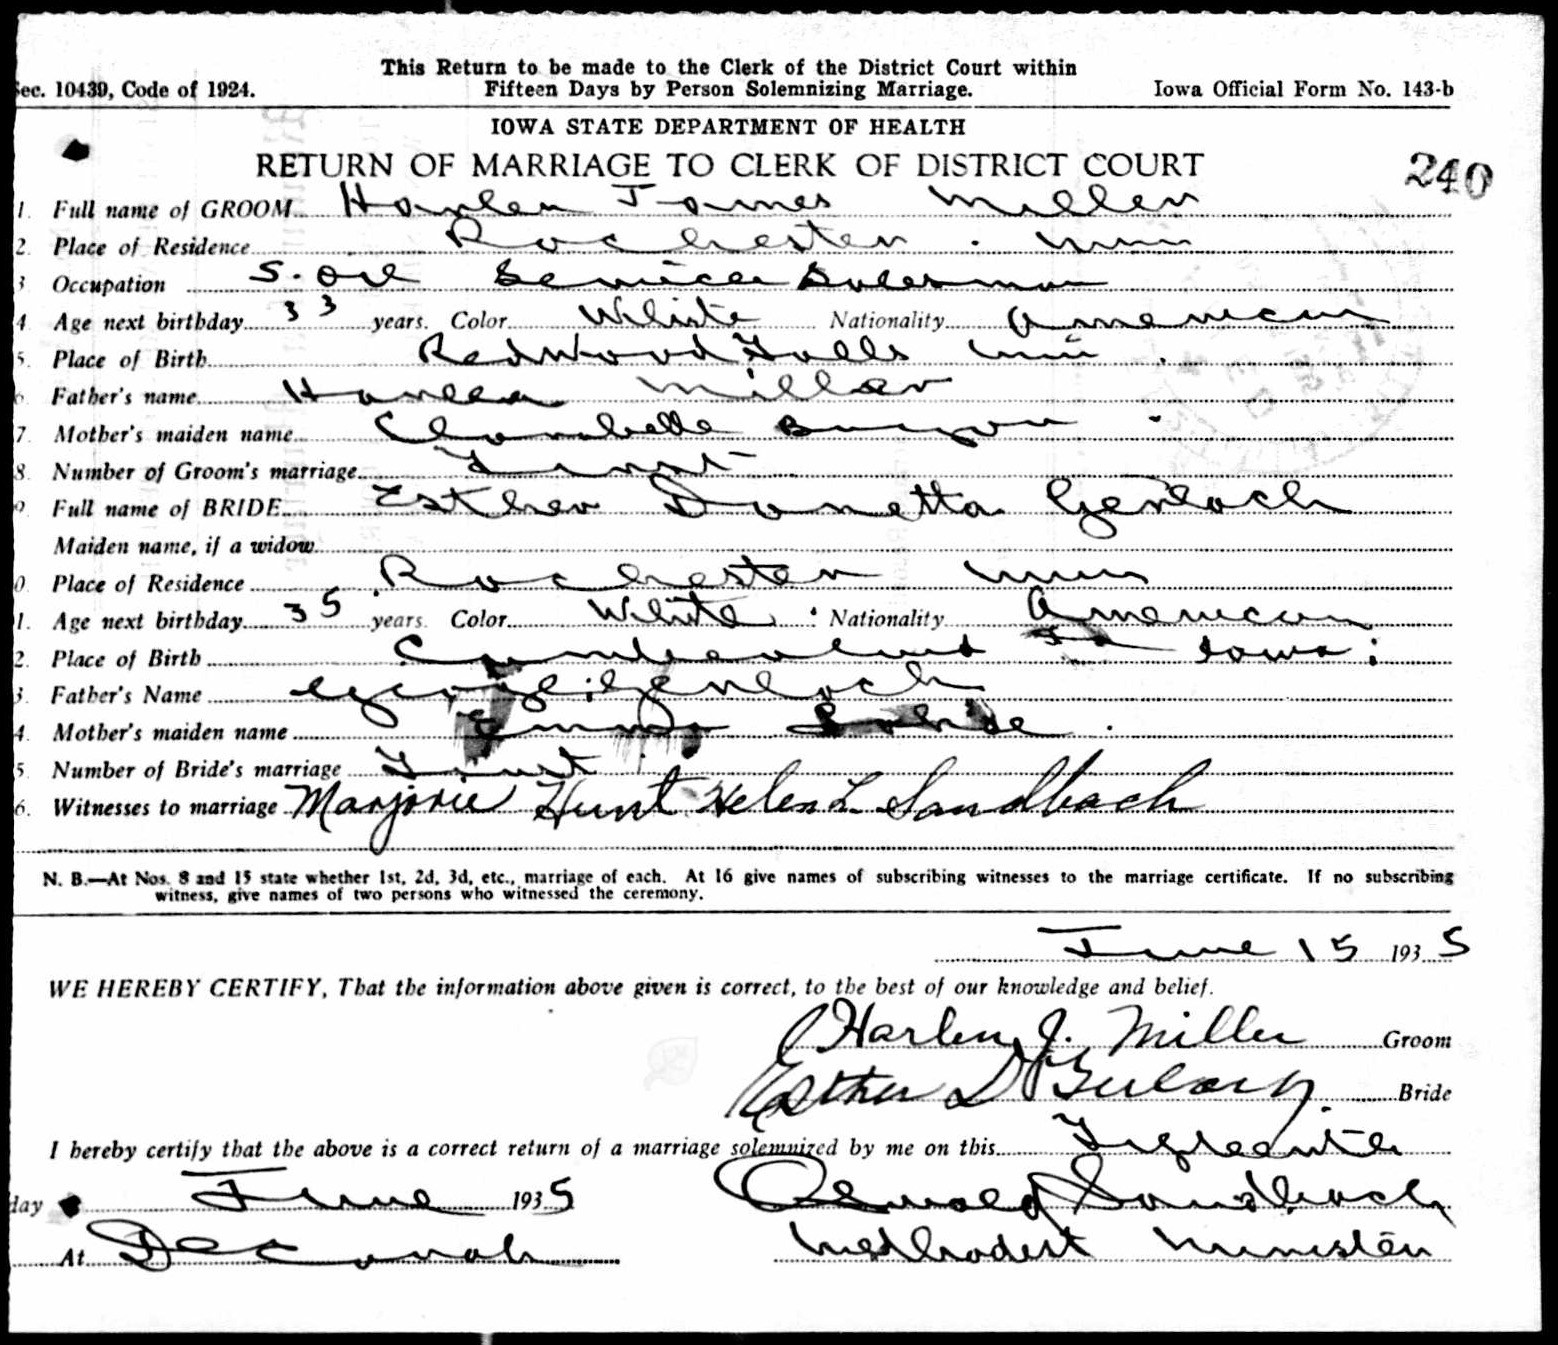 Sec. 10439, Code of 1924.
This Return to be made to the Clerk of the District Court within
Fifteen Days by Person Solemnizing Marriage.
Iowa Official Form No. 143-b
IOWA STATE DEPARTMENT OF HEALTH
RETURN OF MARRIAGE TO CLERK OF DISTRICT COURT
240
1. Full name of GROOM Harlen James Miller
2. Place of Residence Rochester . Minn
3 Occupation S. Oil Service Salesman
4 Age next birthday 33 years. Color White Nationality American
5. Place of Birth Redwood Falls Min .
6. Father's name Harlen Miller
7. Mother's maiden name Clarabelle
8. Number of Groom's marriage First
9 Full name of BRIDE Esther Donetta Gerlach
Maiden name, if a widow
0. Place of Residence Rochester Minn
1. Age next birthday 35 years. Color White Nationality American
2. Place of Birth Iowa
3. Father's Name George Gerlach
4. Mother's maiden name Emma
5. Number of Bride's marriage First
6. Witnesses to marriage Marjorie Hunt Helen L. Sandbach
N. B.—At Nos. 8 and 15 state whether 1st, 2d, 3d, etc., marriage of each. At 16 give names of subscribing witnesses to the marriage certificate. If no subscribing
witness, give names of two persons who witnessed the ceremony.
June 15 1935
WE HEREBY CERTIFY, That the information above given is correct, to the best of our knowledge and belief.
Harlen J. Miller Groom
Esther D Gerlach. Bride
I hereby certify that the above is a correct return of a marriage solemnized by me on this Fifteenth
day June 1935 Oswald Sandbach
At Decorah Methodist Minister